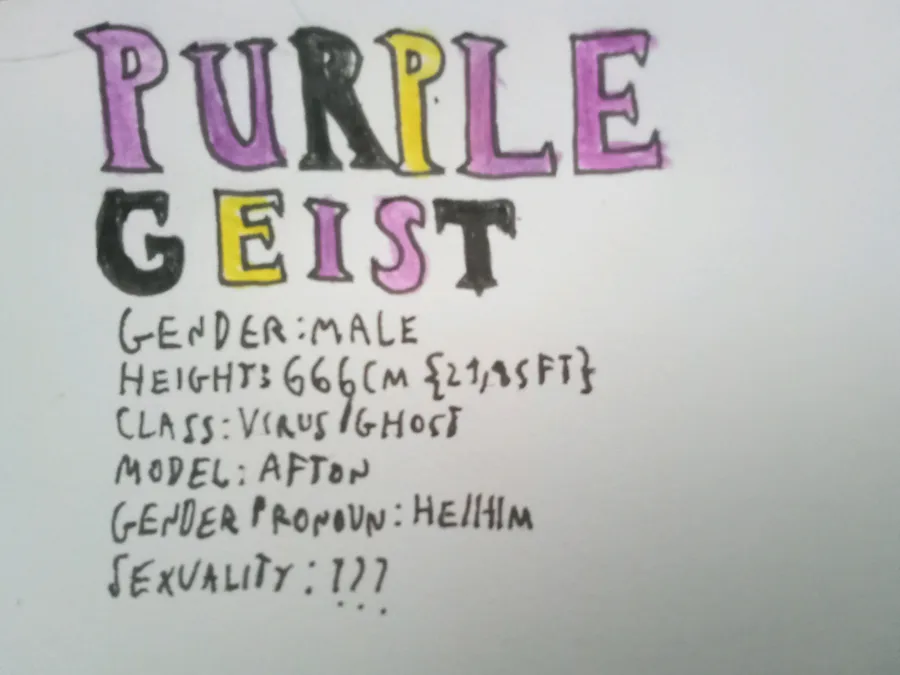 PURPLE
GEIST
GENDER:MALE
HEIGHT:666CM {21,85FT}
CLASS:VIRUS/GHOST
MODEL: AFTON
GENDER PRONOUN: HE/HIM
SEXUALITY: ???